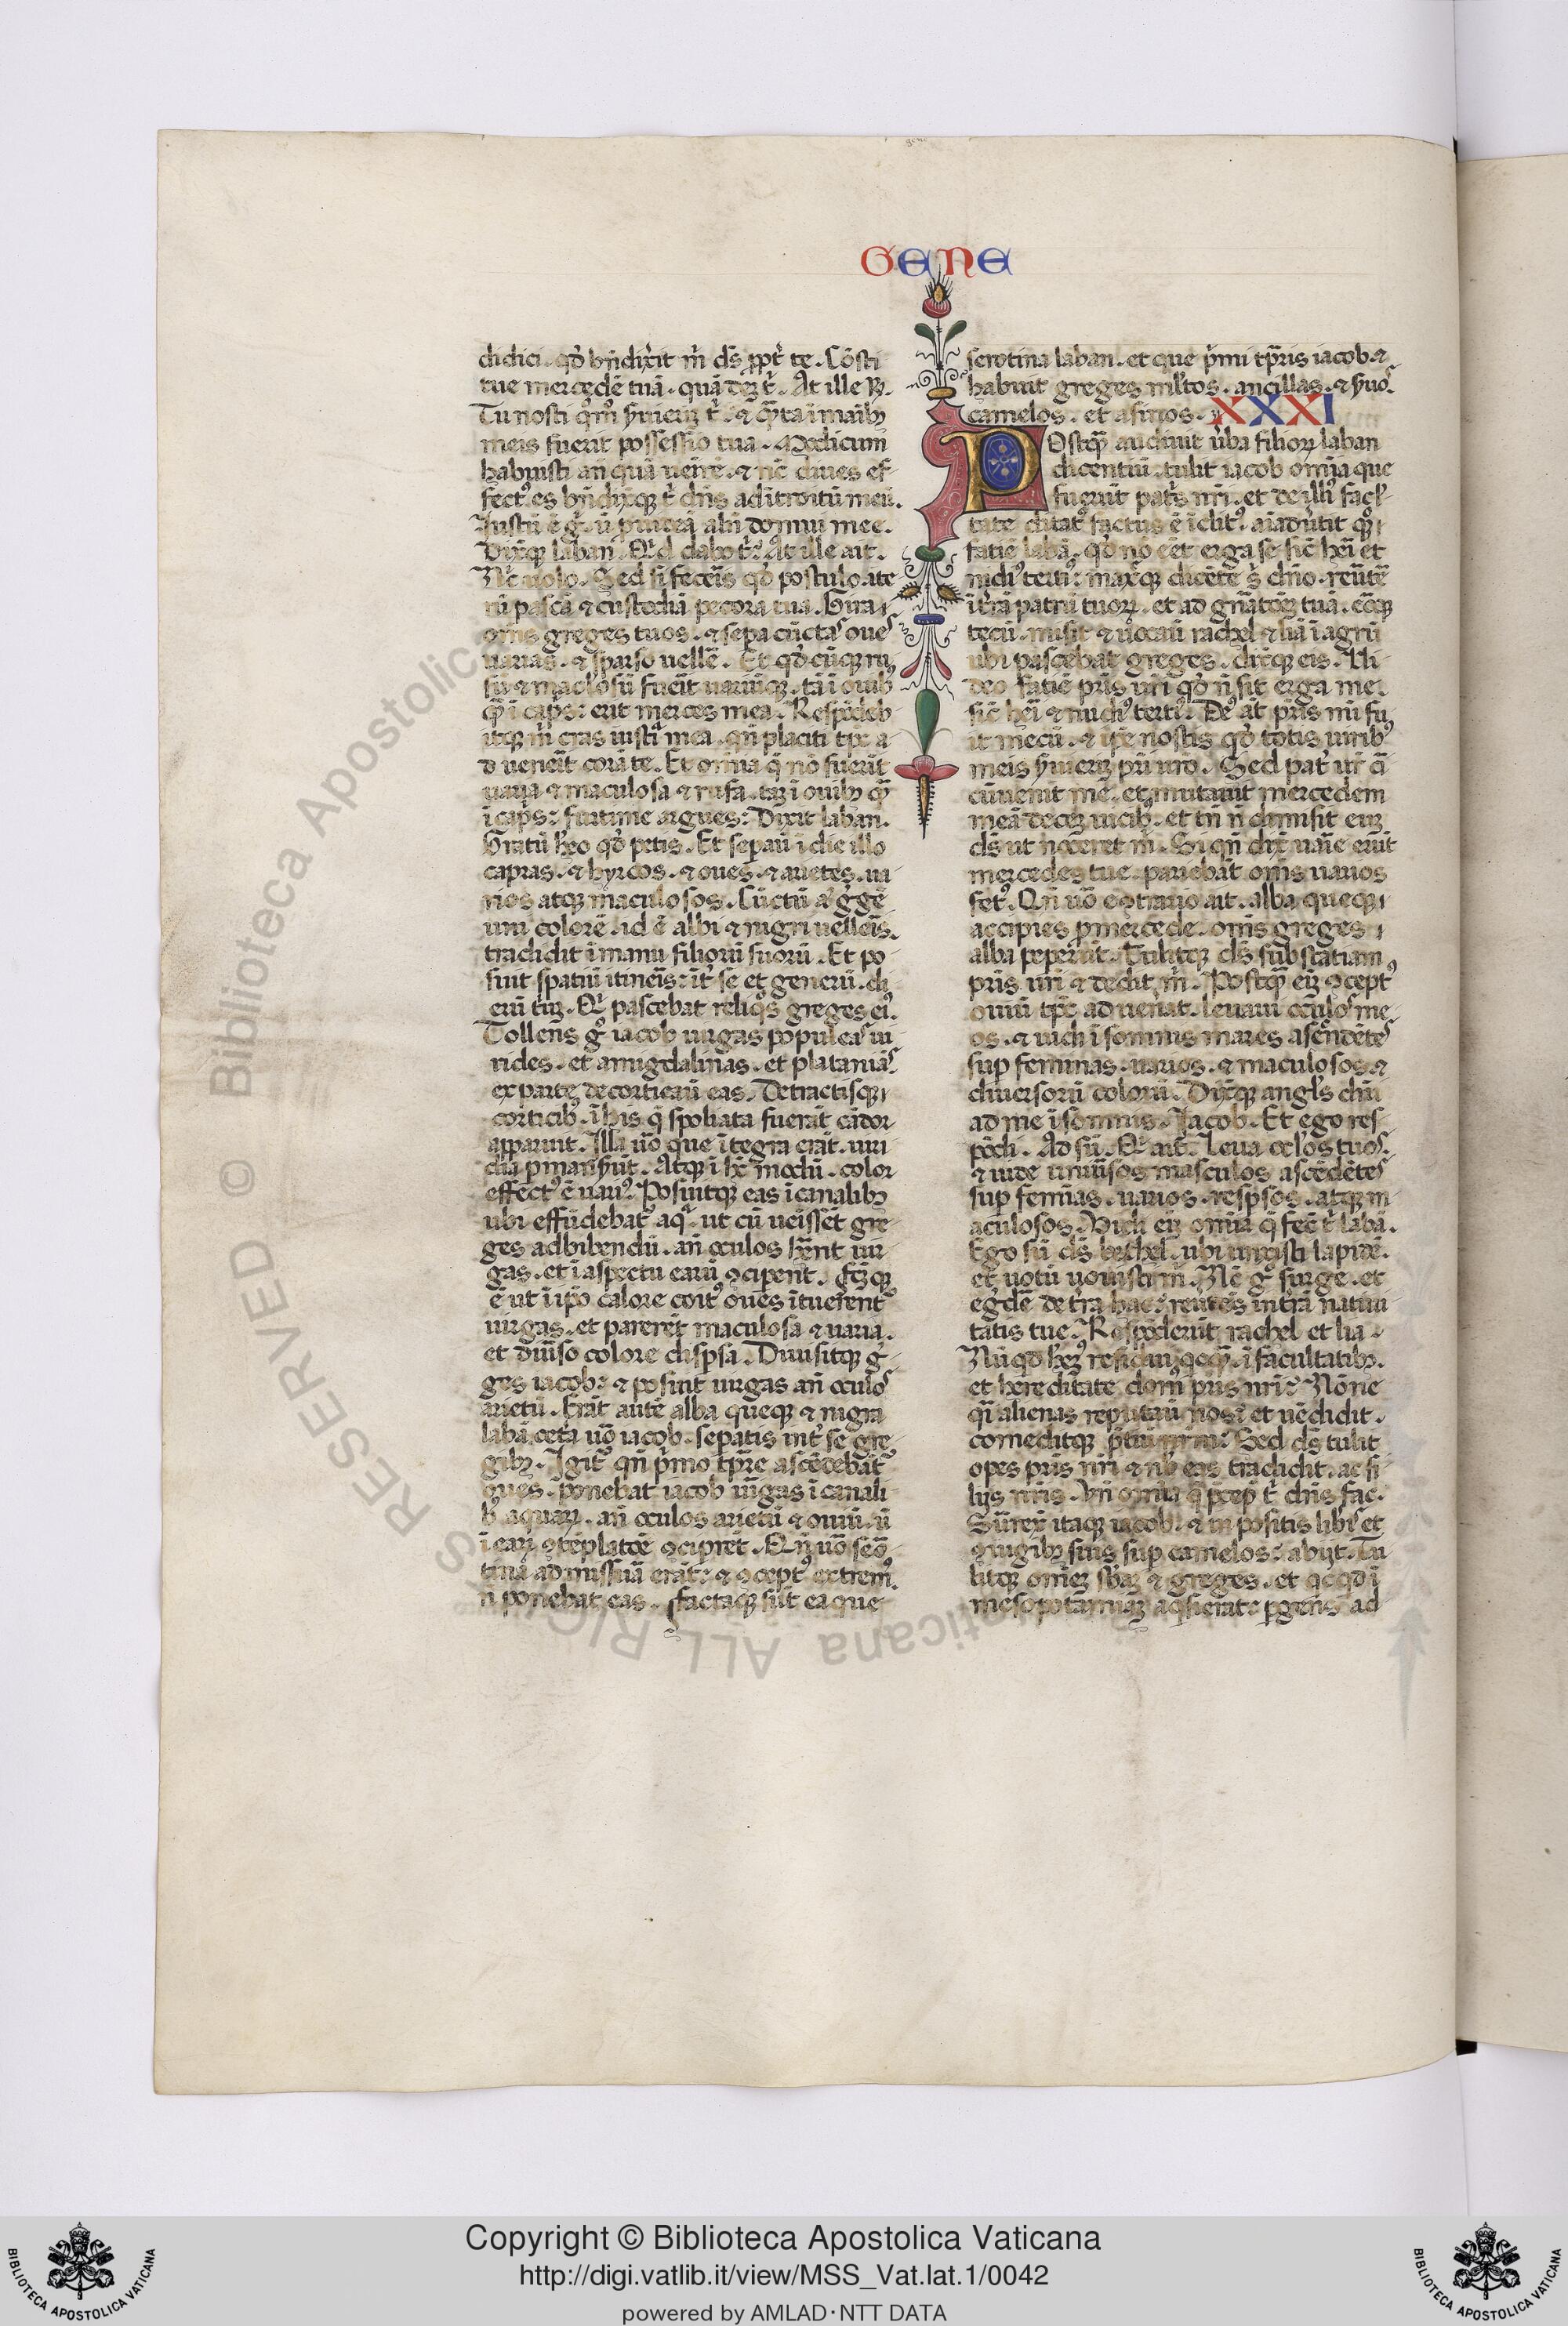 GENE
didici. qd̉ bn̄dixit m̄ ds̄ ꝓpt̉ te. Cōsti
tue mercedē tuā. quā deꝫ t̉. At ille R̄.
Tu nosti q̊m̊ ẜuierīꝫ t̉. ⁊ qͣ̄ta ī maībꝫ
meis fuerit possessio tua. Modicum
habuisti an̄ quā ueīrē. ⁊ nc̄ diues ef-
fectꝰ es bn̄dixitqꝫ t̉ dn̄s ad ītroitū meū.
Justū ē g̊. ut ꝓuideā aln̄ domui mee.
Dixitqꝫ laban. Qͥd dabo t̉. At ille ait.
Nc̄ uolo. Sed si fecēis qd̉ postulo. ite
rū pascā ⁊ custodiā pecora tua. Gira
om̄s greges tuos. ⁊ sepa cūctas oues
uarias. ⁊ sparso uellē. Et qd̉ cūqꝫ ru
fū ⁊ maclosū fuīt uariūqꝫ. tā ī ouibꝰ
qͣ̄ ī cap̄s: erit merces mea. Respōdeb
itqꝫ m̄ cras iustͥ mea. qn̄ placiti tp̄c a
d uenēit corā te. Et omnia q̄ nō fuerīt
uaria ⁊ maculosa ⁊ rufa. taꝫ ī ouibꝫ qͣ̄
ī cap̄s: furti me argues: Dixit laban.
Gratū h̄eo qd̉ petis. Et sepauī ī die illo
capras. ⁊ hyrcos. ⁊ oues. ⁊ arietes. ua
rios atqꝫ maculosos. Cūctū at̄ g̊gē
uni colorē. id ē albi ⁊ nigri uellēis.
tradidit ī manu filiorū suorū. Et po
suit spatiū itinēis: īt̉ se et generū. di
erū triꝫ. Qͥ pascebat reliqͦs greges eiꝰ.
Tollens g̊ iacob uirgas populeas ui
rides. et amigdalinas. et platanīas
ex parte decorticauī eas. Detractisqꝫ
corticibꝰ. ī his q̄ spoliata fuerāt cādor
apparuit. Illa uō que ītegra erāt. uiri
dia ꝑmanẜūt. Atqꝫ ī hc̄ modū. color
effectꝰ ē uariꝰ. Posuitqꝫ eas ī canalibꝫ
ubi effūdebat̉ aqͣ. ut cū ueīssēt gre
ges ad bibendū. an̄ oculos hr̄ent uir
gas. et ī aspectu earū ꝯciperēt. Fc̄ꝫqꝫ
ē ut ī ipō calore coitꝰ oues ītuerentꝰ
uirgas. et parerēt maculosa ⁊ uaria.
et diūso colore dispsa. Diuisitqꝫ g̊
ges iacob: ⁊ posuit uirgas an̄ oculos
arietū. Erāt autē alba queqꝫ ⁊ nigra
labā. cet̉a uō iacob. sepatis īnt̉ se gre
gibꝫ. Igit̉ qn̄ p̄mo tp̄re ascēdebāt
oues. ponebat iacob uīgas ī canali
bꝰ aquarꝫ. an̄ oculos arietū ⁊ ouiū. ut
ī earꝫ ꝯtēplatōe ꝯcip̄ret. Qn̄ uō serō
tina admissura erāt: ⁊ ꝯceptꝰ extremꝰ.
n̄ ponebat eas. factaqꝫ sūt ea que
serotina laban. et que p̄mi tp̄ris iacob. ⁊
habuit greges ml̄tos. ancillas. ⁊ ẜuos.
camelos. et asinos. XXXI
POstqͣ̄ audiuit ūba filiorꝫ laban
dicentiū. tulit iacob omīa que
fuerūt pat̉s nr̄i. et de illiꝰ facl̉
tate ditatꝰ factus ē īclitꝰ. aīaduertit qͦqꝫ
fatiē labā. qd̉ nō eēt erga se sic̄ heī et
nudiꝰtertiꝰ: maxīqꝫ dicēte s̉ dn̄o. reūtē
īt̄rā patrū tuorꝫ. et ad gn̄atōeꝫ tuā. eōqꝫ
tecū. misit ⁊ uocauī rachel ⁊ liā ī agrū
ubi pascebat greges. dixitqꝫ eis. Ui
deo fatiē pr̄is ur̄i qd̉ n̄ sit erga me.
sic̄ heī ⁊ nudiꝰ tertiꝰ. Dēꝰ at̄ pr̄is mī fu
it mecū. ⁊ ip̄e nostis qd̉ totis uiribꝰ
meis ẜuierīꝫ pr̄i ur̄o. Sed pat̉ ur̄ cī
cūuenit me. et mutauit mercedem
meā deceꝫ uicibꝰ. et tn̄ n̄ dimisit euꝫ
ds̄ ut noceret m̄. Si qn̄ dix̄ uarīe erūt
mercedes tue. pariebāt om̄s uarios
fet̉ꝰ. Qn̄ uō e ꝯtrario ait. alba queqꝫ
accipies ꝓ mercede. om̄s greges
alba pepeŕūt. Tulitqꝫ ds̄ substātiam
pr̄is ur̄i ⁊ dedit m̄. Postqͣ̄ eīꝫ ꝯceptꝰ
ouiū tp̄c aduenat. leuaui oculos me
os. ⁊ uidi ī somnis mares ascēndētes
suꝑ feminas. uarios. ⁊ maculosos. ⁊
diuersorū colorū. Dixitqꝫ angl̉s dn̄i
ad me ī somnis. Iacob. Et ego res
pōdi. Ad sū. Qͥ ait. Leua oclos tuos.
⁊ uide uniūsos masculos ascēdētes
suꝑ femīas. uarios. respsos. atqꝫ m
aculosos. Uidi eīꝫ omīa q̄ fec̄ t̉ labā.
Ego sū ds̄ bethel. ubi unxisti lapidē.
et uotū uouisti m̄. Nc̄ g̊ surge. et
eg̉dē de t̉ra hac: reūtēs in t̉rā natiui
tatis tue. Respōderūt rachel et lia.
Nūqͥd h̄eꝫ residui qcqͣ̄. ī facultatibꝫ.
et hereditate domꝰ pr̄is nr̄i: Nōne
qͣī alienas reputauī nos: et uēdidit.
comeditqꝫ p̄tiū nr̄m: Sed ds̄ tulit
opes pr̄is nr̄i ⁊ nb̄ eas tradidit. ac fi
lijs nr̄is. Un̄ omīa q̄ p̄cep̄ t̉ dn̄s fac.
Surrex̄ itaqꝫ iacob: ⁊ īn positis libīs et
ꝯiugibꝫ suis suꝑ camelos: abijt. Tu
litqꝫ omēꝫ sb̄aꝫ ⁊ greges. et qcqͥd ī
mesopotamiaꝫ aqͥsierat: ꝑgens ad
Copyright © Biblioteca Apostolica Vaticana
http://digi.vatlib.it/view/MSS_Vat.lat.1/0042
powered by AMLAD·NTT DATA
BIBLIOTECA APOSTOLICA VATICANA
BIBLIOTECA APOSTOLICA VATICANA